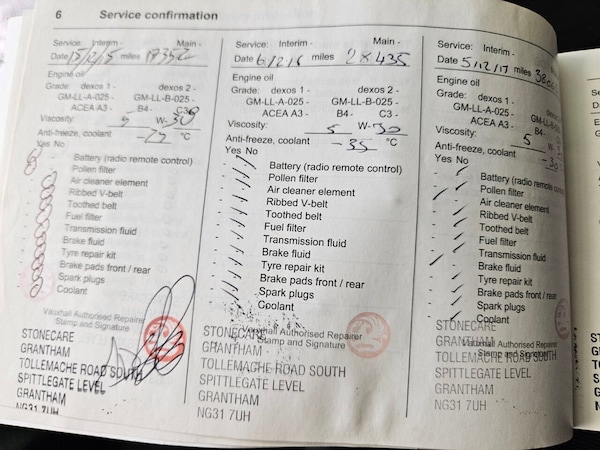 6 Service confirmation
Service: Interim - Main -
Date 15/12/15 miles
Engine oil
Grade: dexos 1 - dexos 2 -
GM-LL-A-025 - GM-LL-B-025 -
ACEA A3 - B4- C3-
Viscosity: 5 W-30
Anti-freeze, coolant °C
Yes No
Battery (radio remote control)
Pollen filter
Air cleaner element
Ribbed V-belt
Toothed belt
Fuel filter
Transmission fluid
Brake fluid
Tyre repair kit
Brake pads front / rear
Spark plugs
Coolant
Vauxhall Authorised Repairer
Stamp and Signature
STONECARE
GRANTHAM
TOLLEMACHE ROAD SOUTH
SPITTLEGATE LEVEL
GRANTHAM
NG31 7UH
Service: Interim - Main -
Date 6/12/16 miles 28435
Engine oil
Grade: dexos 1 - dexos 2 -
GM-LL-A-025 - GM-LL-B-025 -
ACEA A3 - B4 - C3 -
Viscosity: 5 W-30
Anti-freeze, coolant -35 °C
Yes No
Battery (radio remote control)
Pollen filter
Air cleaner element
Ribbed V-belt
Toothed belt
Fuel filter
Transmission fluid
Brake fluid
Tyre repair kit
Brake pads front / rear
Spark plugs
Coolant
Vauxhall Authorised Repairer
Stamp and Signature
STONECARE
GRANTHAM
TOLLEMACHE ROAD SOUTH
SPITTLEGATE LEVEL
GRANTHAM
NG31 7UH
Service: Interim -
Date 5/12/17 miles
Engine oil
Grade: dexos 1 -
GM-LL-A-025 -
ACEA A3 - B4-
Viscosity: 5 W-
Anti-freeze, coolant -30
Yes No
Battery (radio remote
Pollen filter
Air cleaner element
Ribbed V-belt
Toothed belt
Fuel filter
Transmission fluid
Brake fluid
Tyre repair kit
Brake pads front / rear
Spark plugs
Coolant
Vauxhall Authorised Repairer
Stamp and Signature
STONECARE
GRANTHAM
TOLLEMACHE ROAD SOUTH
SPITTLEGATE LEVEL
GRANTHAM
NG31 7UH